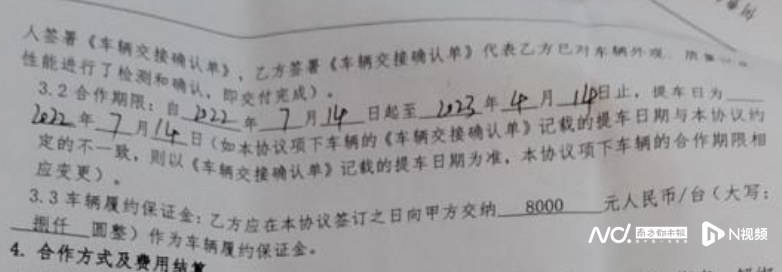 人签署《车辆交接确认单》，乙方签署《车辆交接确认单》代表乙方已对车辆外观、质量
性能进行了检测和确认，即交付完成）。
3.2合作期限：自 2022 年 7 月 14 日起至 2023 年 4 月 14 日止，提车日为
2022 年 7 月 14 日（如本协议项下车辆的《车辆交接确认单》记载的提车日期与本协议约
定的不一致，则以《车辆交接确认单》记载的提车日期为准，本协议项下车辆的合作期限相
应变更）。
3.3车辆履约保证金：乙方应在本协议签订之日向甲方交纳 8000 元人民币/台（大写：
捌仟 圆整）作为车辆履约保证金。
4. 合作方式及费用结算
南方都市报 N视频